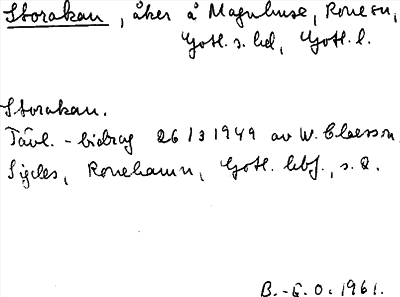 Storakan, åker å Magnhuse, Rone sn,
Gotl. s. hd, Gotl. l.
Storakan.
Tävl.-bidrag 26/3 1949 av W. Claesson
Sigdes, Ronehamn, Gotl. hbf., s. 2.
B.-G.O. 1961.